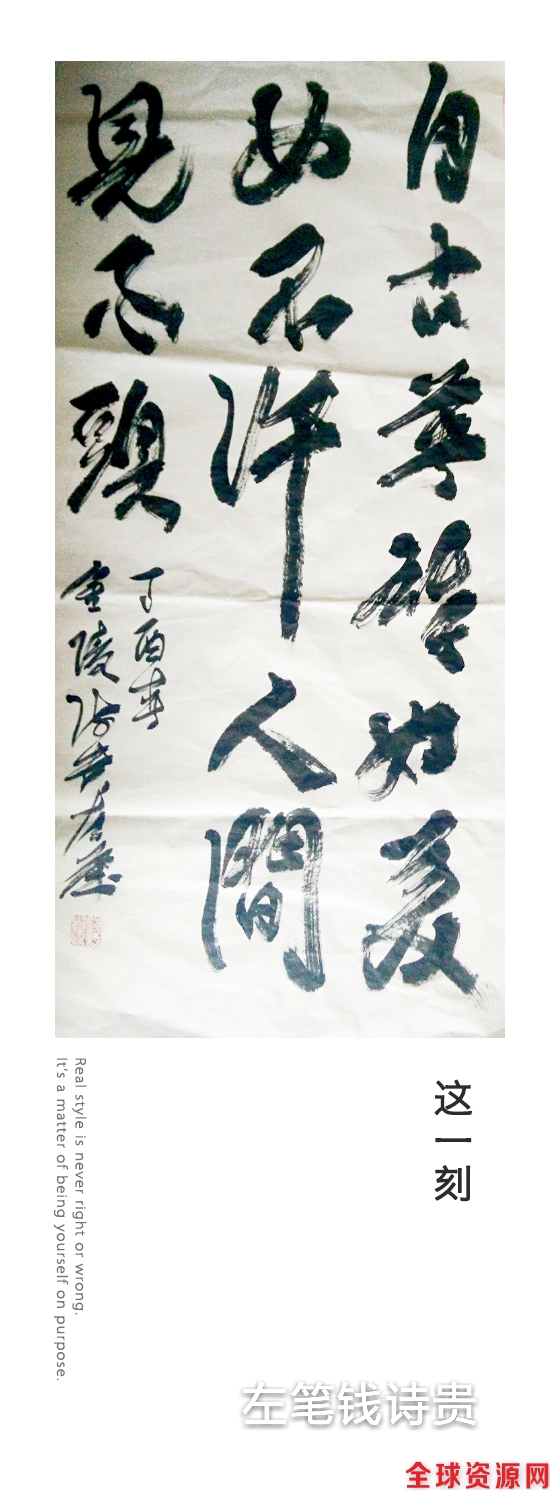 自古英雄如美
女不許人間
見白頭
丁酉春
金陵
这一刻
Real style is never right or wrong.
It's a matter of being yourself on purpose.
左笔钱诗贵
全球资源网